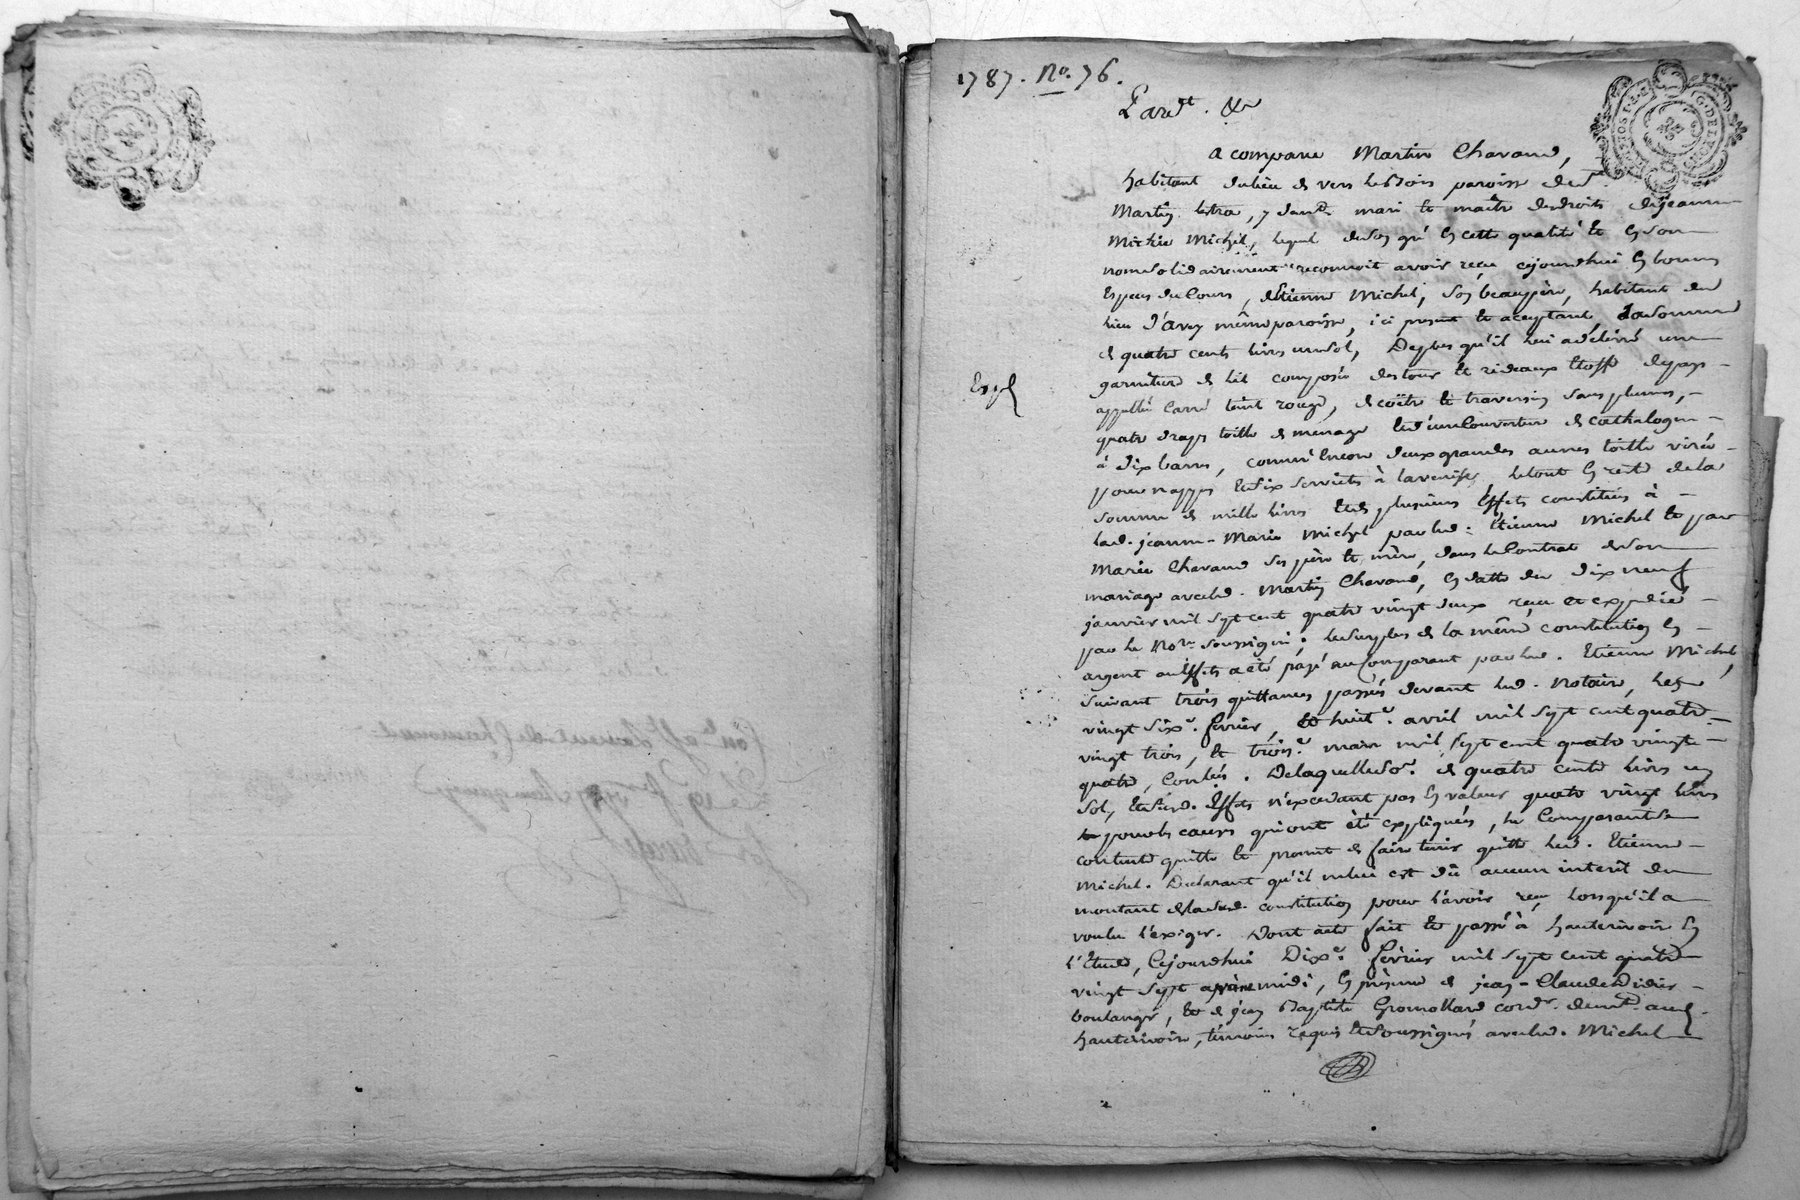 1787. No. 76.
Pard.t &a
a comparu Martin Chavand,
habitant du lieu de vers le Bois paroisse de St.
Martin lestra, y demt. mari et maître des droits de jeanne
Michel, lequel de son gré en cette qualité et en son
nom solidairement reconnoit avoir reçu cejourdhui en bonnes
Espèces du Cours, d'Etienne Michel, son beaupère, habitant du
lieu d'Avey même paroisse, ici present et acceptant la somme
de quatre cents livres un sol, Deplus qu'il lui a délivré une
garniture de lit composée des tour et rideaux Etoffe de pays
appellée Carré teint rouge, de coëtre et traversin sans plumes,
quatre draps toille de menage et d'une Couverture de cathalogne
à dix barres, comm'Encore deux grandes aunes toille
pour nappes et six serviettes à la venise, le tout en reste de la
somme de mille livres et de plusieurs Effets constitués à
lad. jeanne-Marie Michel par led. Etienne Michel et par
Marie Chavand ses père et mère, dans le Contrat de son
mariage avec led. Martin Chavand, en datte du dix neuf
janvier mil sept cent quatre vingt deux reçu et expédié
par le Nore. soussigné; le surplus de la même constitution en
argent ou Effets a été payé au Comparant par led. Etienne Michel,
suivant trois quittances passées devant led. Notaire, les
vingt sixe. fevrier, et huite. avril mil sept cent quatre
vingt trois, et troise. mars mil sept cent quatre vingt
quatre, Conlées. De laquelle so.e de quatre cents livres un
sol, et susd. Effets n'excedant pas en valeur quatre vingt livres
pour les causes qui ont été expliquées, le Comparant se
contente quitte et promet de faire tenir quitte led. Etienne
Michel. Declarant qu'il ne lui est dû aucun interêt du
montant de la susd. constitution pour l'avoir reçu lorsqu'il a
voulu l'exiger. Dont acte fait et passé à hauterivoire en
l'Etude, Cejourdhui Dixe. fevrier mil sept cent quatre
vingt sept après midi, en présence de jean-Claude Didier
boulanger, et de jean Baptiste Gromollard cordr. demt. aud.
hauterivoire, témoins requis et soussignés avec led. Michel
Expé